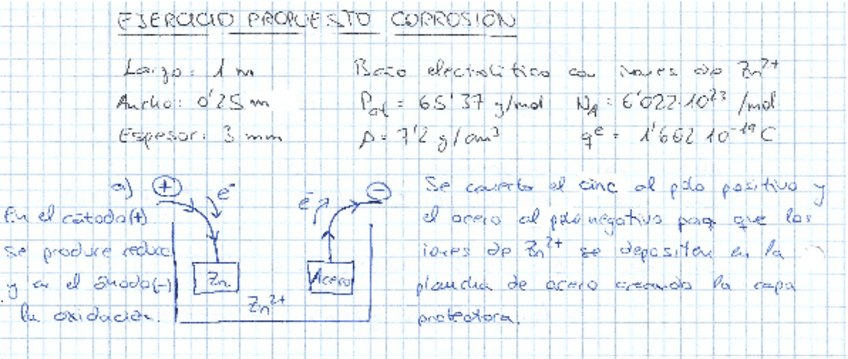 EJERCICIO PROPUESTO CORROSIÓN
Largo: 1 m
Ancho: 0'25 m
Espesor: 3 mm
Baño electrolítico con iones de Zn2+
Pat = 65'37 g/mol NA = 6'022·10^23 /mol
ρ = 7'2 g/cm³ qe = 1'602 10^-19 C
a) + e- e- -
En el cátodo(+)
se produce reducc
y en el ánodo(-)
la oxidación.
Zn Acero
Zn2+
Se conecta el cinc al polo positivo y
el acero al polo negativo para que los
iones de Zn2+ se depositen en la
plancha de acero creando la capa
protectora.